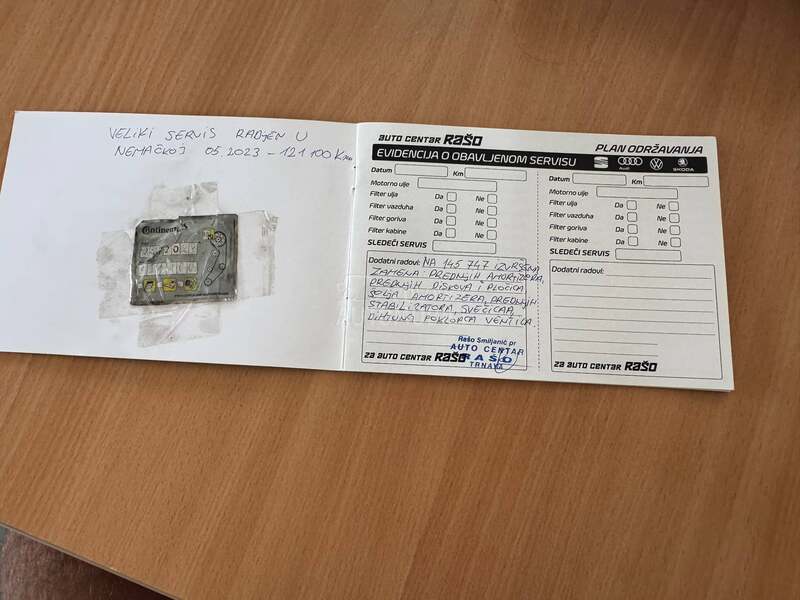 VELIKI SERVIS RADJEN U
NEMAČKOJ 05.2023 - 121 100 Km
Continental
AUTO CENTAR RAŠO
PLAN ODRŽAVANJA
EVIDENCIJA O OBAVLJENOM SERVISU
Audi
ŠKODA
Datum
Km
Motorno ulje
Filter ulja
Da
Ne
Filter vazduha
Da
Ne
Filter goriva
Da
Ne
Filter kabine
Da
Ne
SLEDEĆI SERVIS
Dodatni radovi: NA 145 747 IZVRŠENA
ZAMENA: PREDNJIH AMORTIZERA,
PREDNJIH DISKOVA i PLOČICA
ŠOLJA AMORTIZERA, PREDNJIH
STABILIZATORA, SVEĆICA,
DIHTUNG POKLOPCA VENTILA.
Rašo Smiljanić pr
AUTO CENTAR
RAŠO
TRNAVA
za AUTO CENTAR RAŠO
Datum
Km
Motorno ulje
Filter ulja
Da
Ne
Filter vazduha
Da
Ne
Filter goriva
Da
Ne
Filter kabine
Da
Ne
SLEDEĆI SERVIS
Dodatni radovi:
za AUTO CENTAR RAŠO